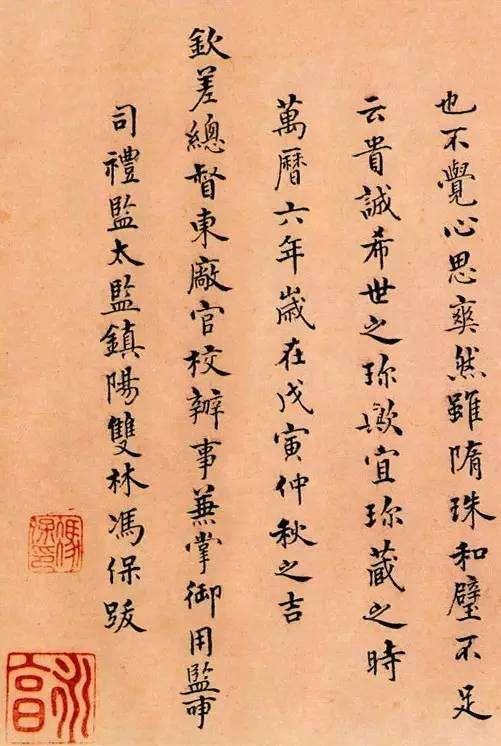 也不覺心思爽然雖隋珠和璧不足
云貴誠希世之珍歟宜珍藏之時
萬曆六年歲在戊寅仲秋之吉
欽差總督東廠官校辦事兼掌御用監事
司禮監太監鎮陽雙林馮保跋
馮保印